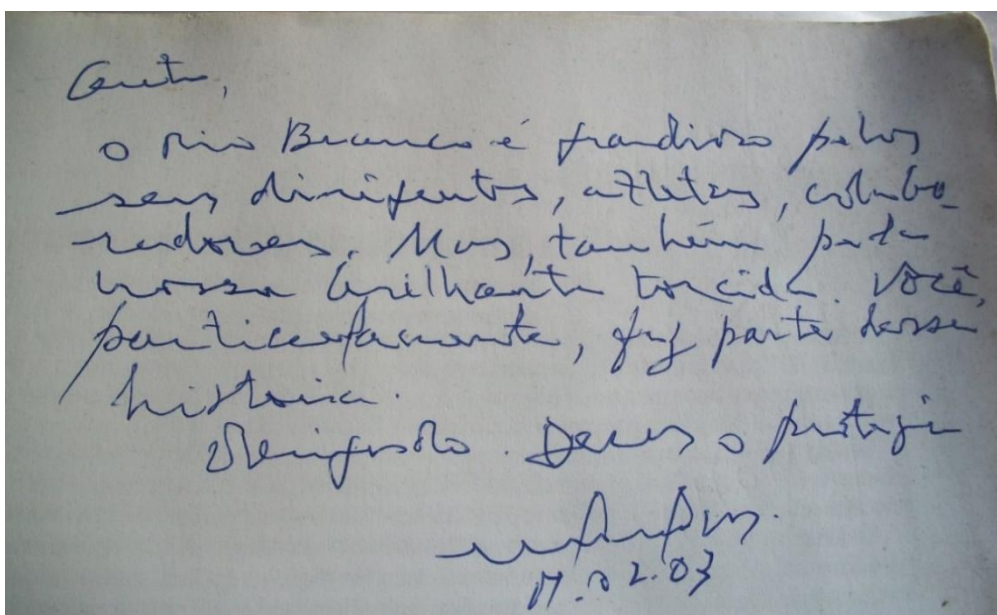 o Rio Branco é grandioso pelos
seus dirigentes, atletas, colabo-
radores. Mas, também pela
nossa brilhante torcida. Você,
particularmente, faz parte dessa
história.
Obrigado. Deus o proteja